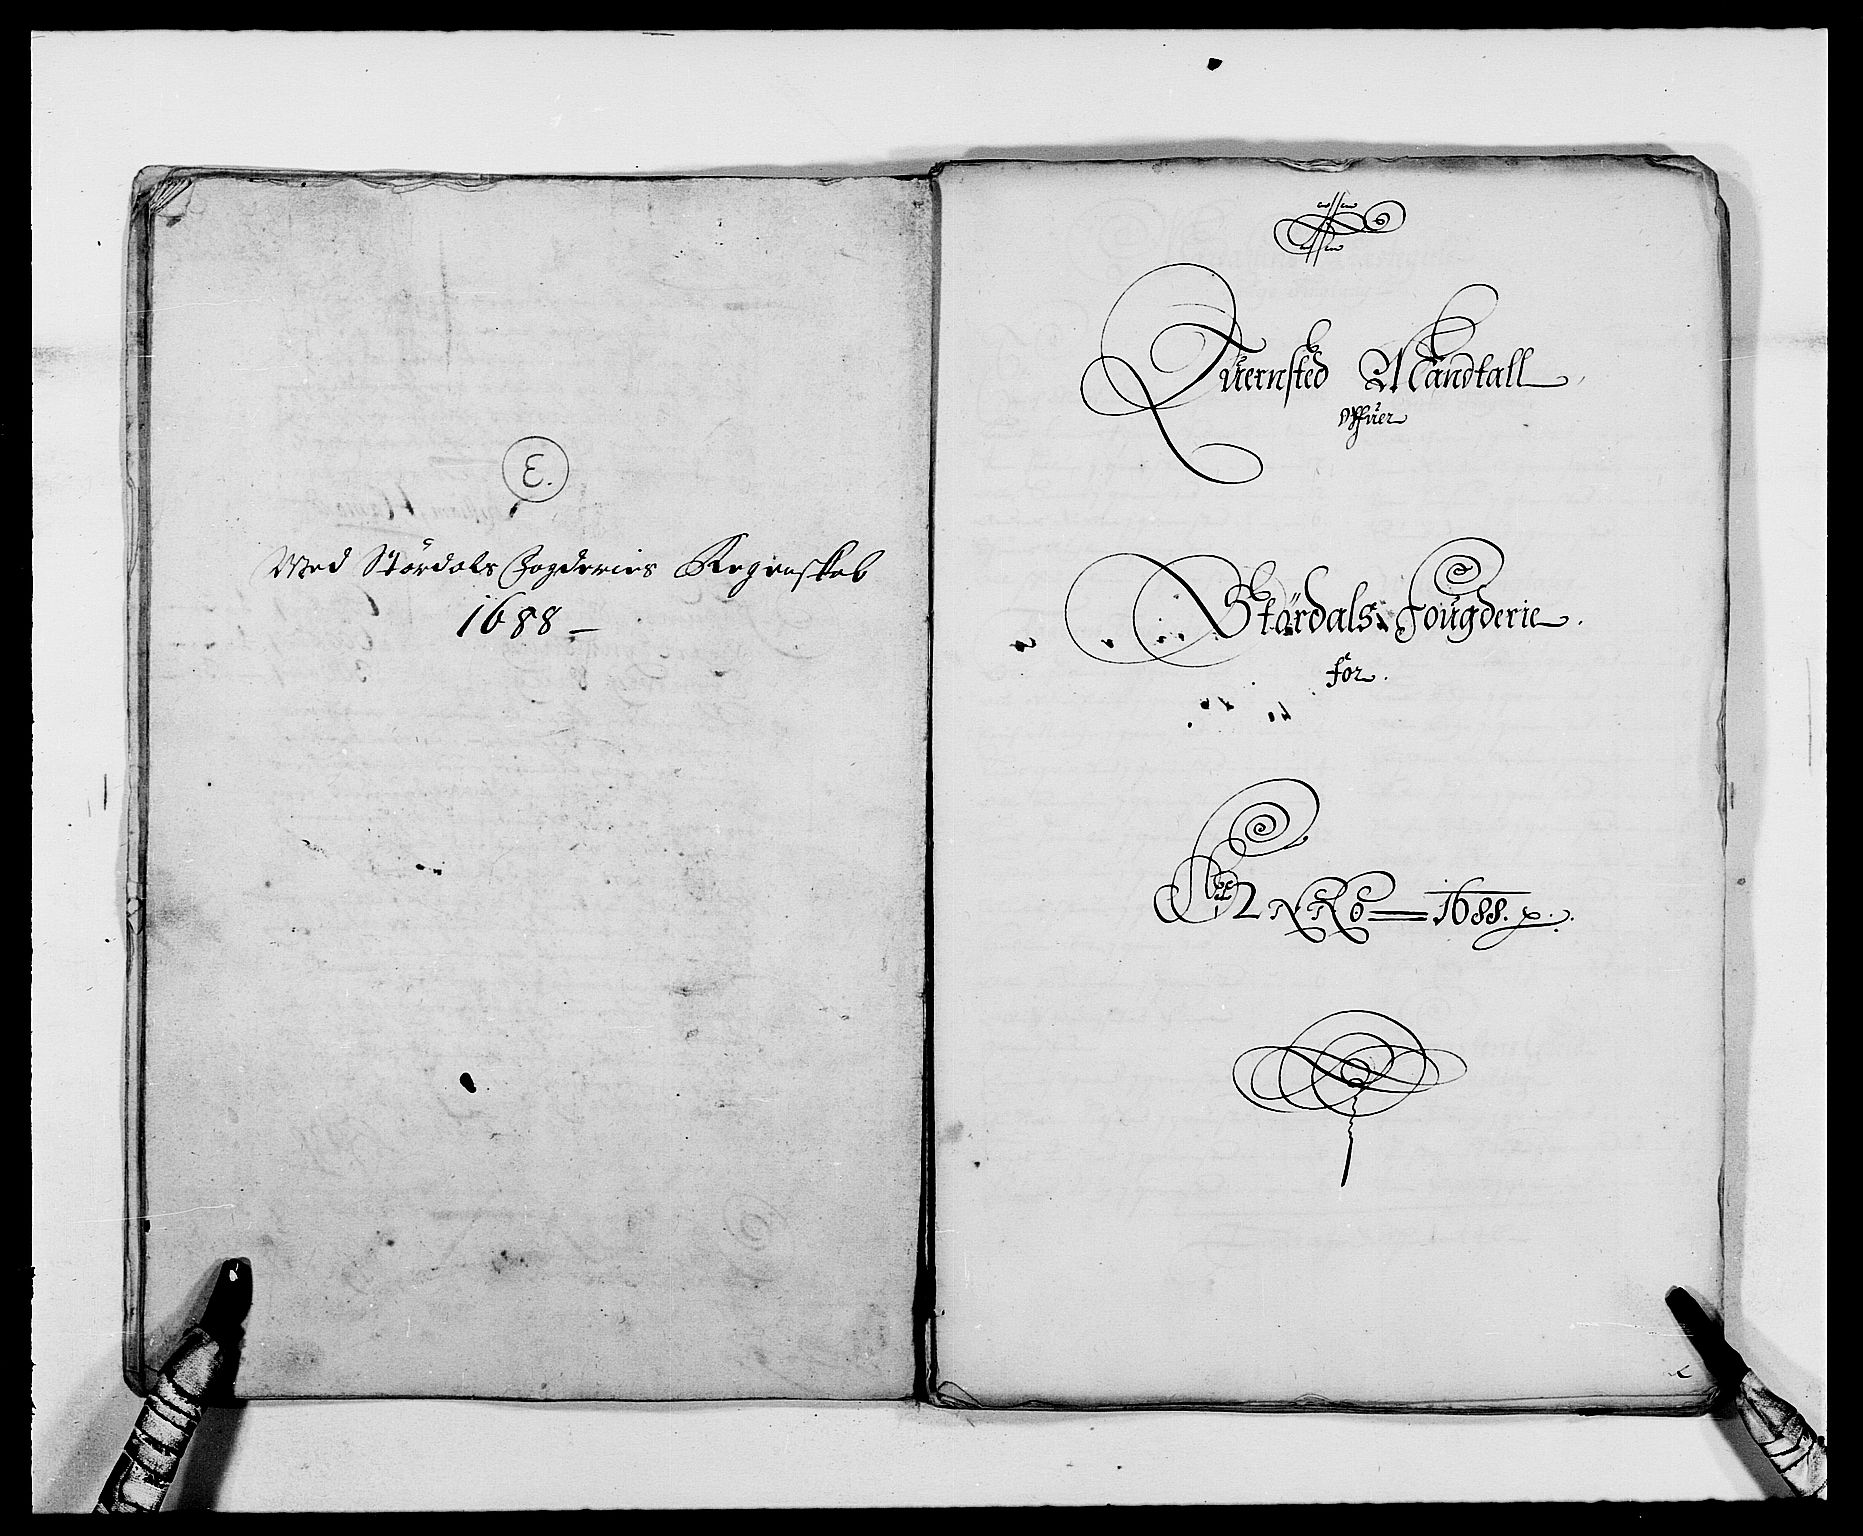 3.
Med Stördals Fogderies Regenskab
1688 –
Quernsted Mandtall
offuer
Stördals Fougderie.
for.
ANNO = 1688.